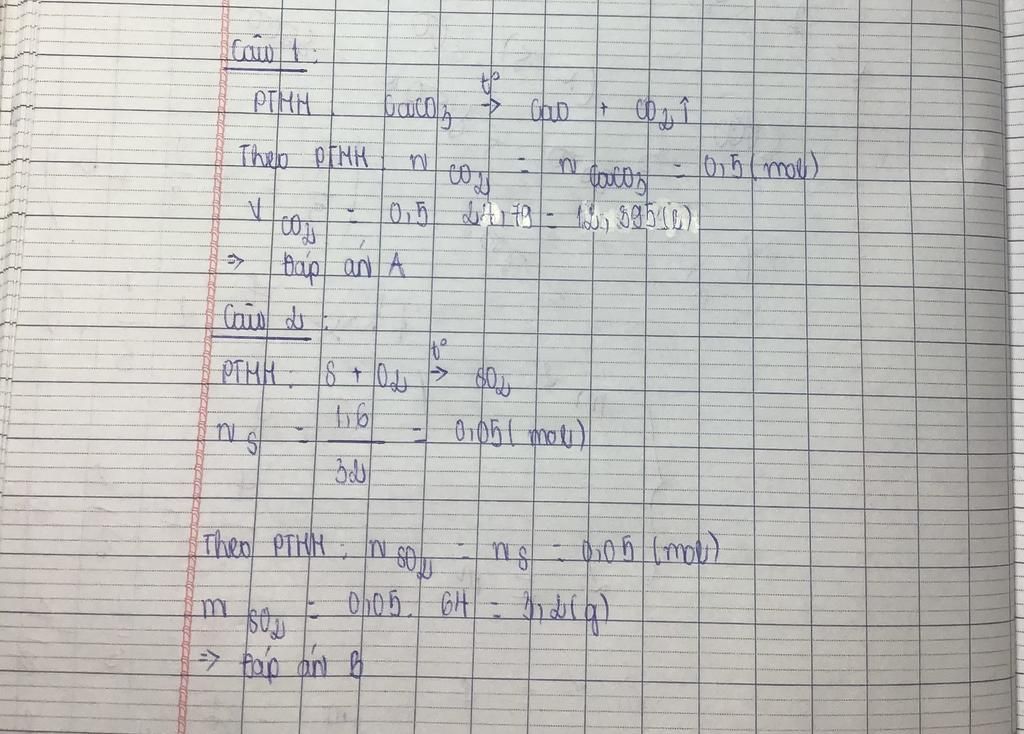 Câu 1:
PTHH CaCO3 t° → CaO + CO2↑
Theo PTHH n CO2 = n CaCO3 = 0,5 (mol)
V CO2 = 0,5 24,79 = 12,395 (l)
⇒ Đáp án A
Câu 2:
PTHH: S + O2 t° → SO2
n S = 1,6 / 32 = 0,05 (mol)
Theo PTHH: n SO2 = n S = 0,05 (mol)
m SO2 = 0,05. 64 = 3,2 (g)
⇒ Đáp án B